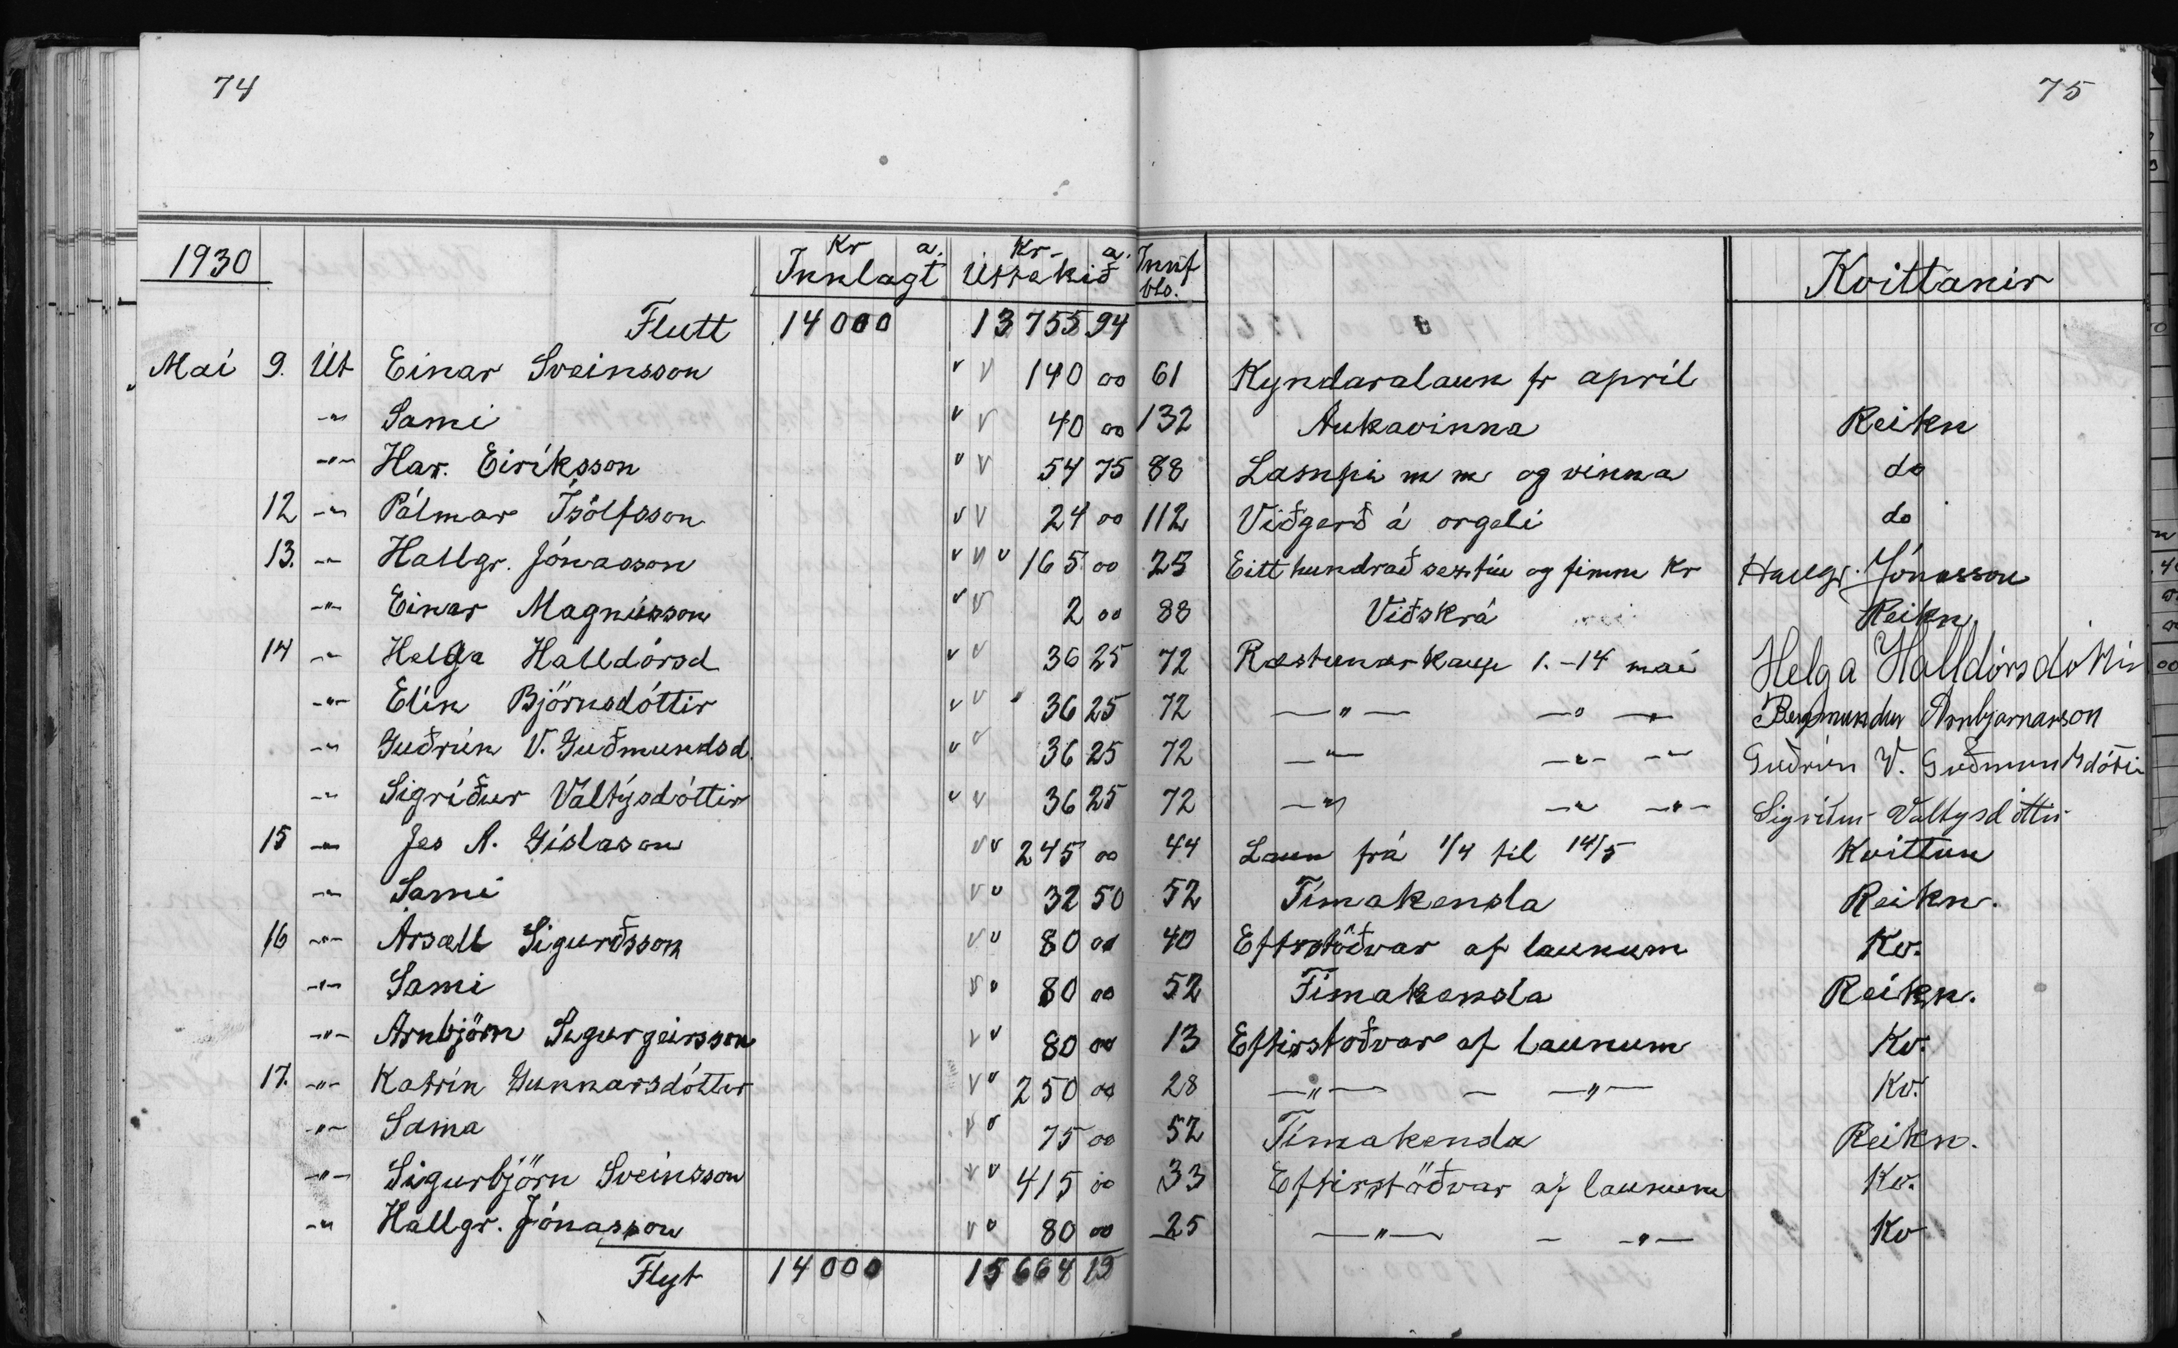 74 75
1930 Kr a. Innlagt Kr- a. Úttekið Innf bls. Kvittanir
Flutt 14000 13755 94
Maí 9. Út Einar Sveinsson 140 00 61 Kyndaralaun fr apríl
-"- Sami 40 00 132 Aukavinna Reikn
-"- Har. Eiríksson 54 75 88 Lampi m m og vinna do
12 -"- Pálmar Ísólfsson 24 00 112 Viðgerð á orgeli do
13. -"- Hallgr. Jónasson 165 00 25 Eitt hundrað sextíu og fimm Kr Hallgr. Jónasson
-"- Einar Magnússon 2 00 88 Viðskrá Reikn
14 -"- Helga Halldórsd 36 25 72 Ræstunarkaup 1.-14 maí Helga Halldórsdóttir
-"- Elín Björnsdóttir 36 25 72 -"- -"- -"- Bergmundur Arnbjarnarson
-"- Guðrún V. Guðmundsd. 36 25 72 -"- -"- -"- Guðrún V. Guðmundsdóttir
-"- Sigríður Valtýsdóttir 36 25 72 -"- -"- -"- Sigríður Valtysdóttir
15 -"- Jes A. Gíslason 245 00 44 Laun frá 1/4 til 14/5 Kvittun
-"- Sami 32 50 52 Tímakensla Reikn.
16 -"- Ársæll Sigurðsson 80 00 40 Eftirstöðvar af launum Kv.
-"- Sami 80 00 52 Tímakensla Reikn.
-"- Arnbjörn Sigurgeirsson 80 00 13 Eftirstöðvar af launum Kv.
17. -"- Katrín Gunnarsdóttir 250 00 28 -"- - -"- Kv.
-"- Sama 75 00 52 Tímakensla Reikn.
-"- Sigurbjörn Sveinsson 415 00 33 Eftirstöðvar af launum Kv.
-"- Hallgr. Jónasson 80 00 25 -"- - -"- Kv
Flyt 14000 15664 19